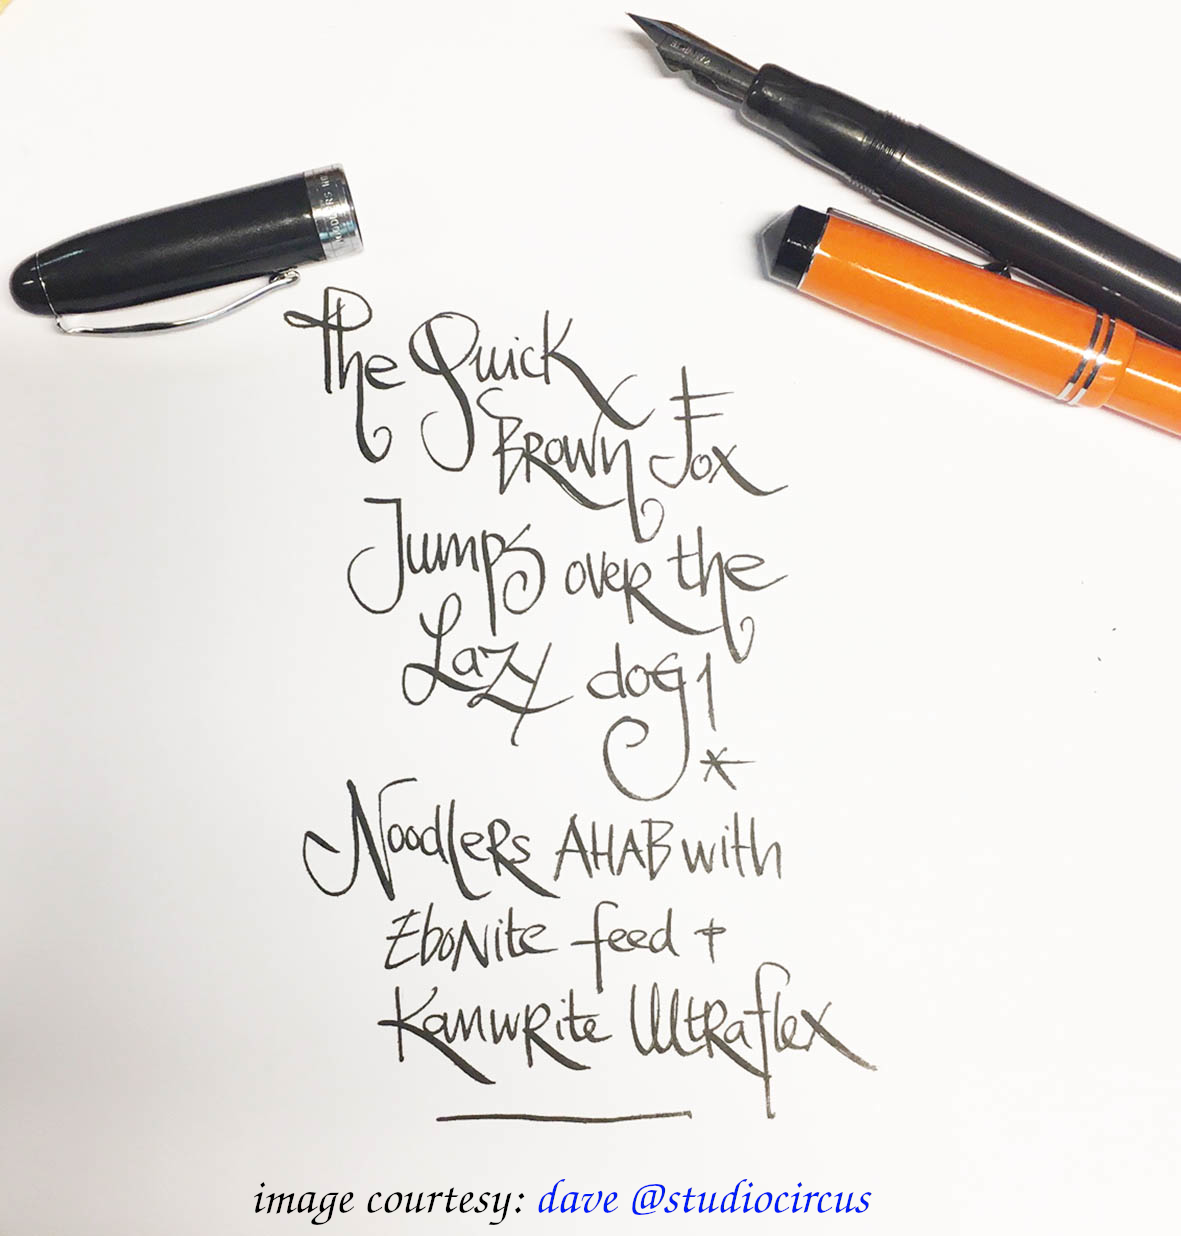 The Quick
Brown Fox
Jumps over the
Lazy dog!
*
Noodlers AHAB with
Ebonite feed +
Kanwrite Ultraflex
image courtesy: dave @studiocircus